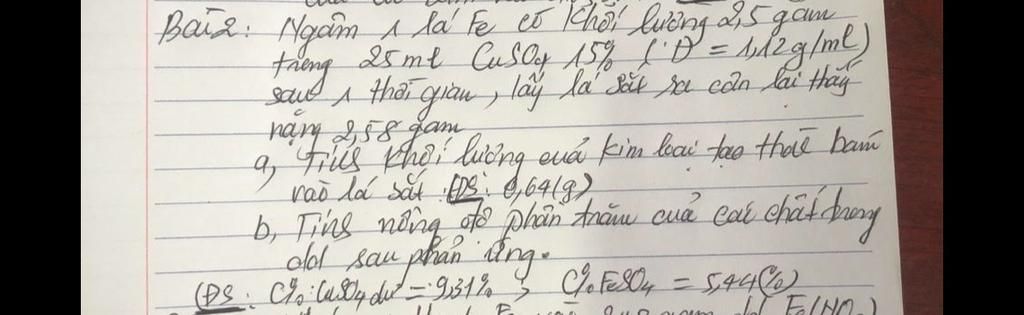 Bài 2: Ngâm 1 lá Fe có khối lượng 2,5 gam
trong 25ml CuSO4 15% (D = 1,12 g/ml)
sau 1 thời gian, lấy lá sắt ra cân lại thấy
nặng 2,58 gam
a, Tính khối lượng của kim loại tạo thoẽ bám
vào lá sắt. ĐS: 0,64(g)
b, Tính nồng độ phần trăm của các chất trong
dd sau phản ứng.
(ĐS: C% CuSO4 dư = 9,31% ; C% FeSO4 = 5,44(%)
Fe(NO3)